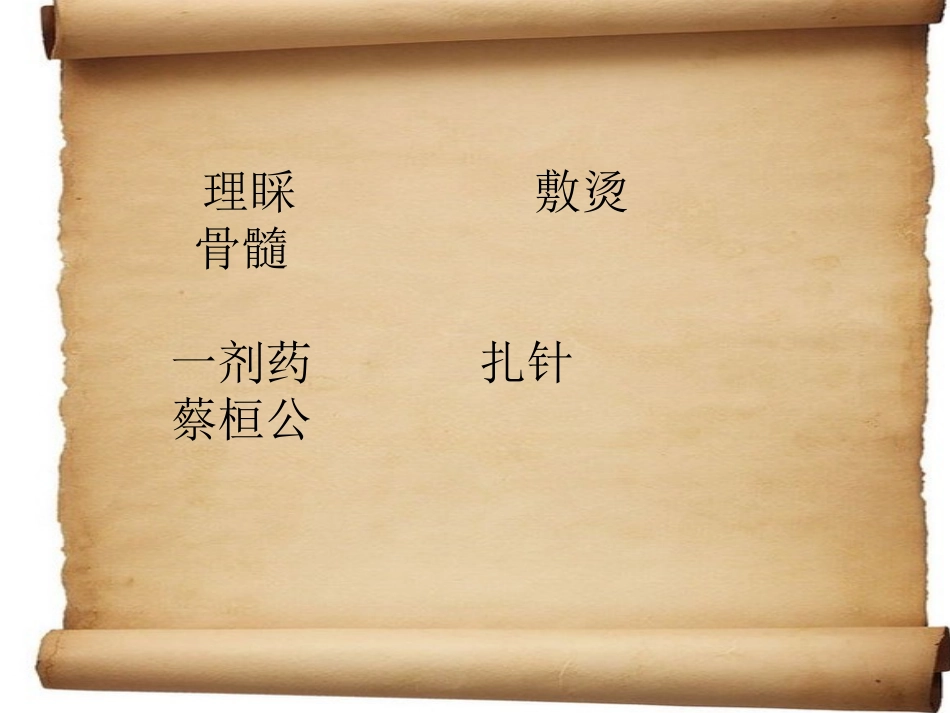 理睬 敷烫
骨髓
一剂药 扎针
蔡桓公